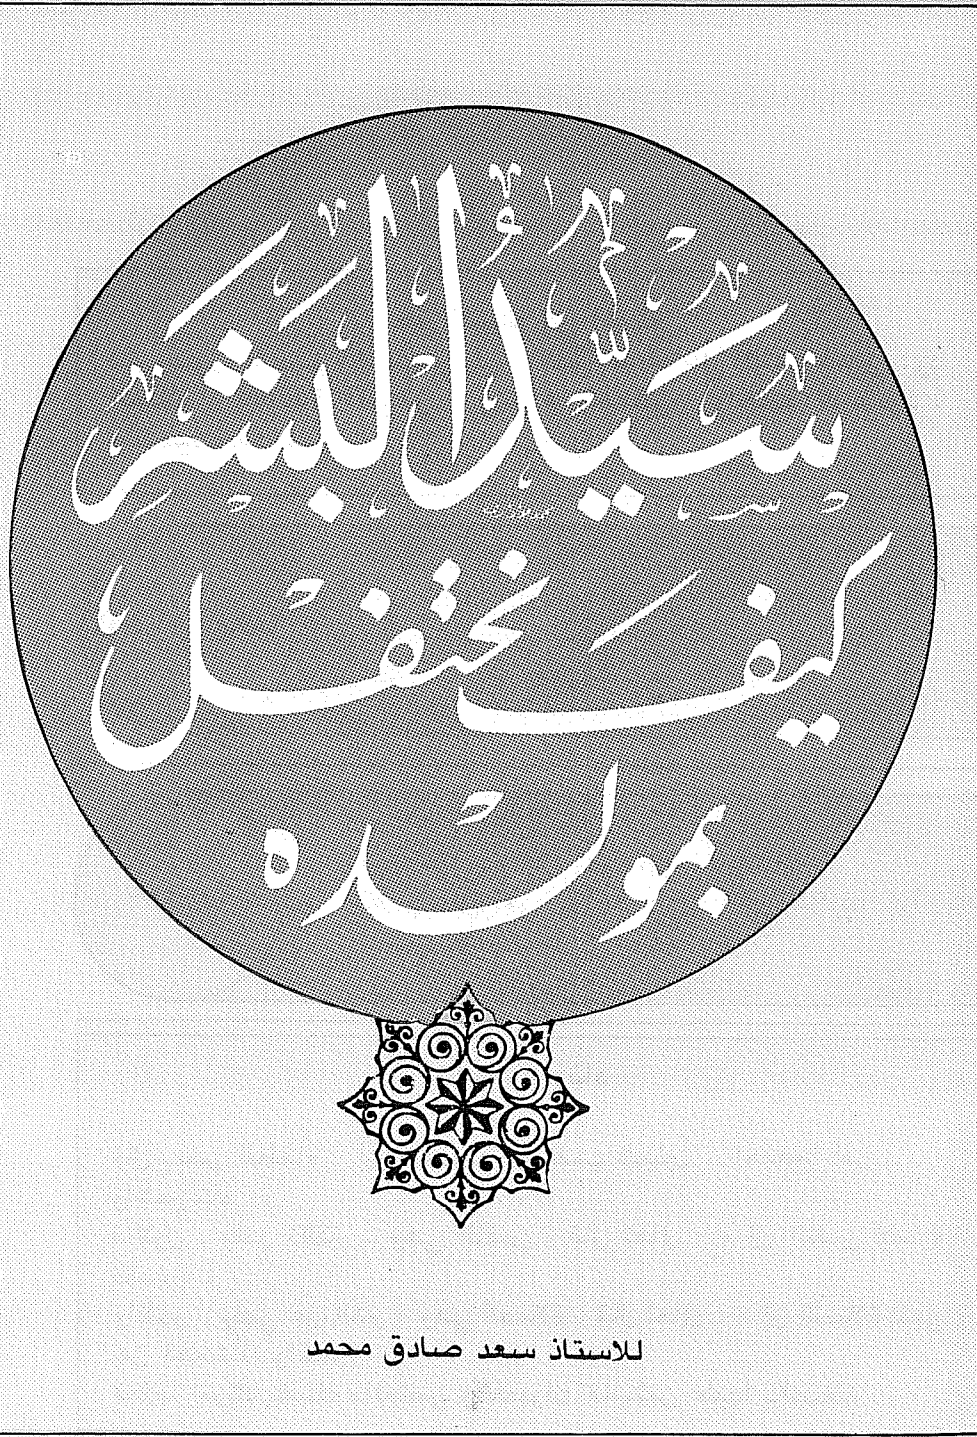 سَيِّدُ البَشَرِ
كيف نحتفل
بمولده
للاستاذ سعد صادق محمد